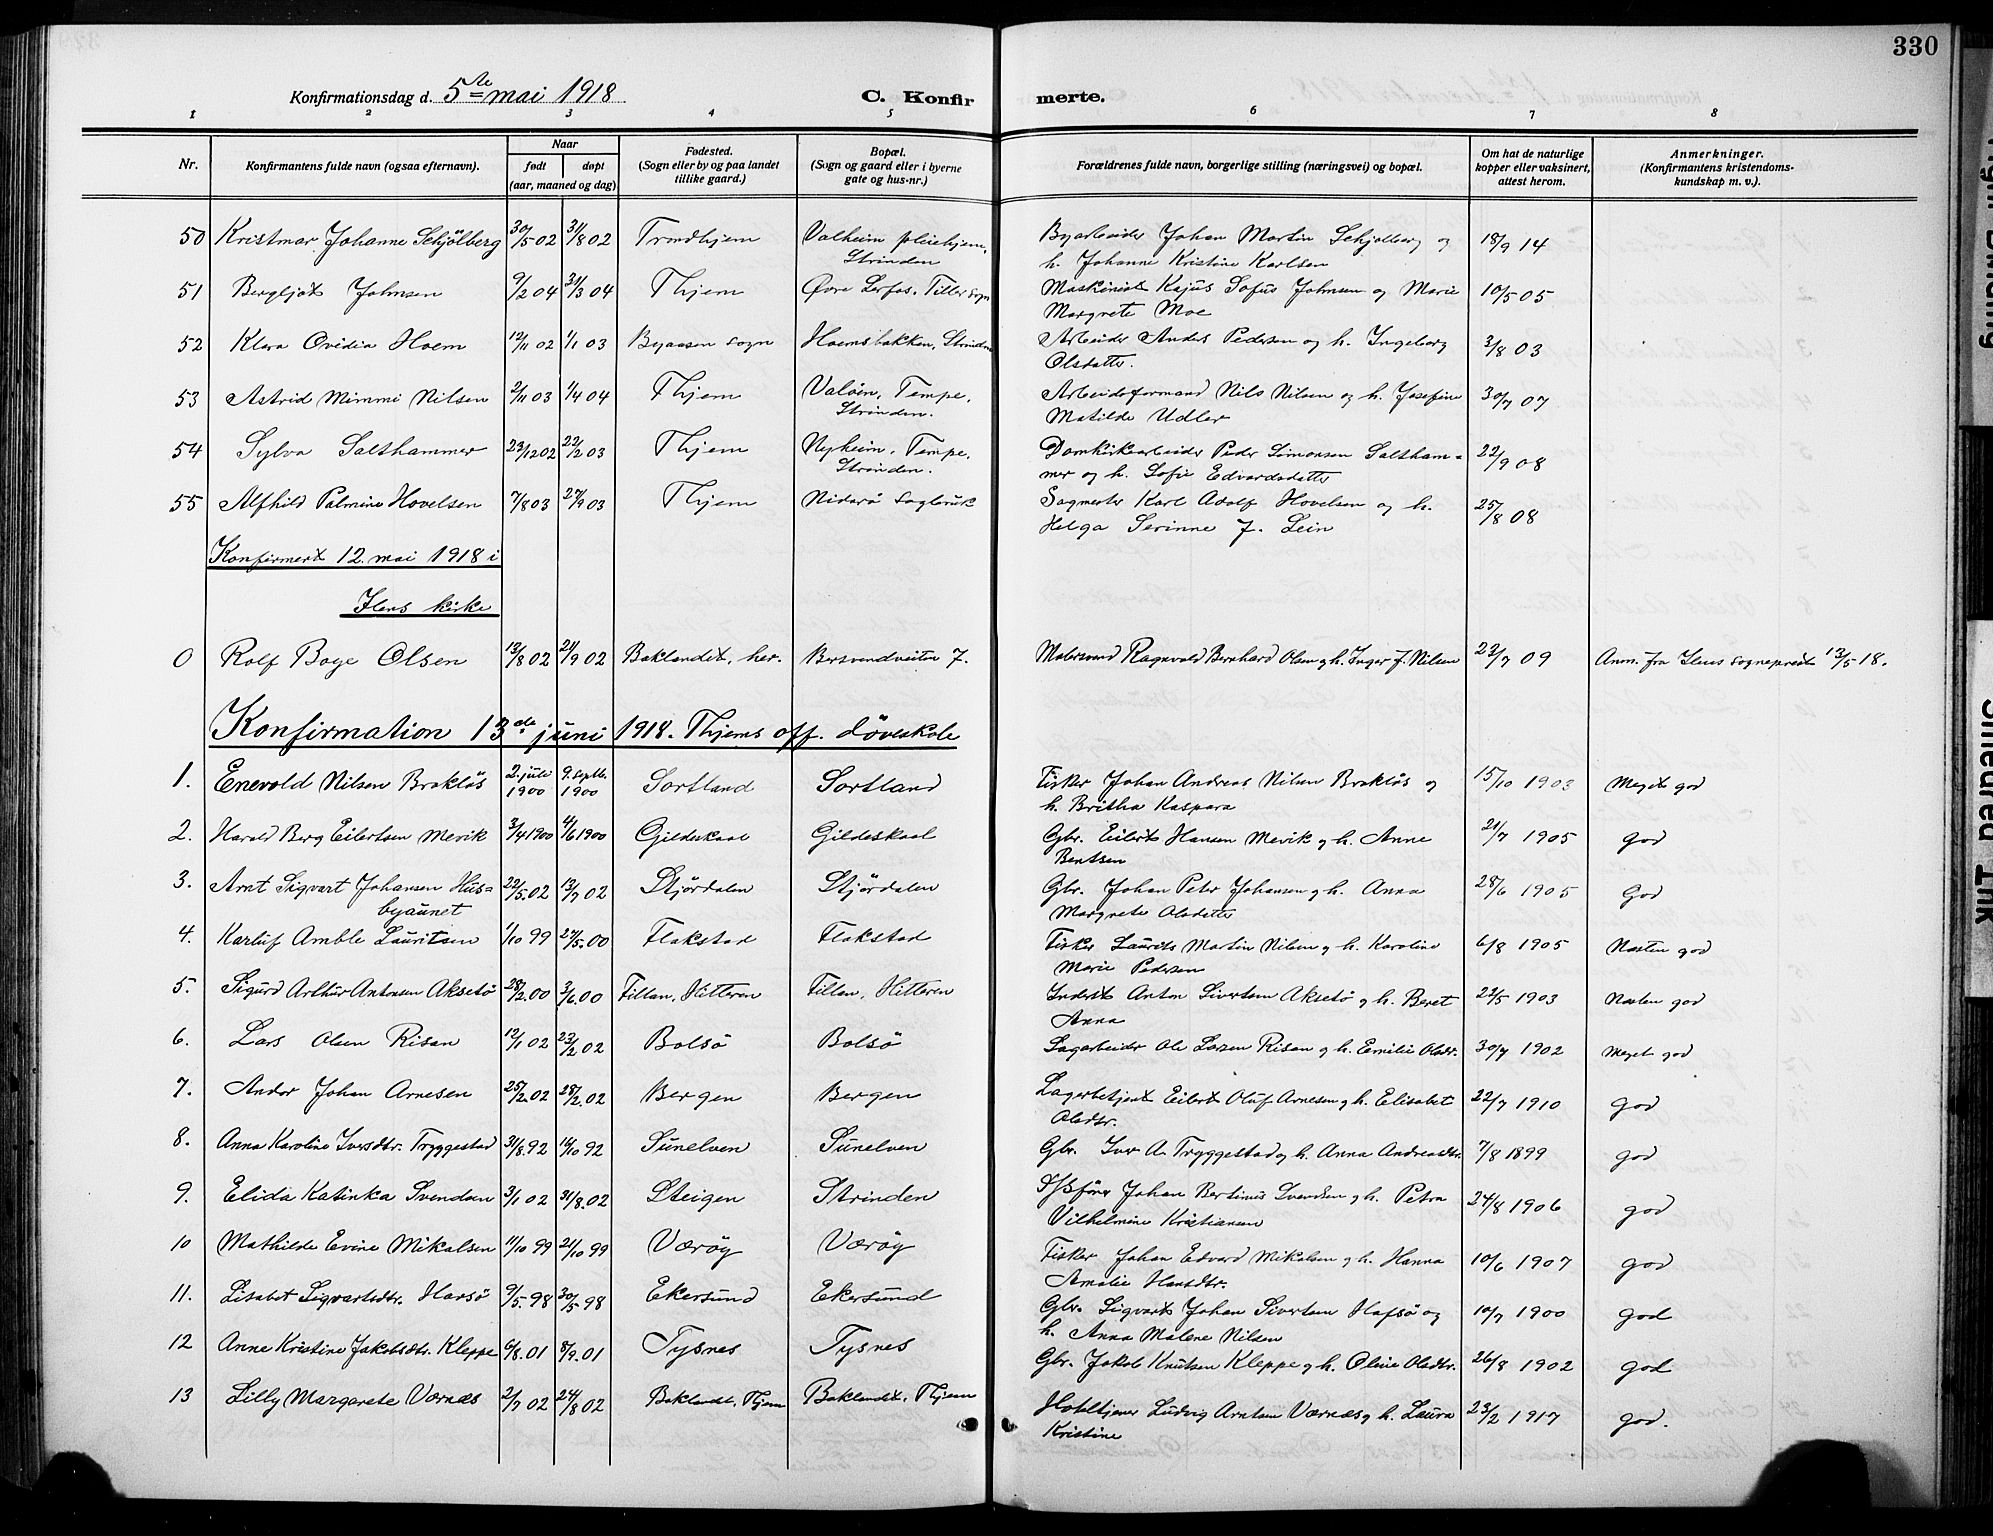 330
Konfirmationsdag d. 5te mai 1918
C. Konfirmerte.
1 2 3 4 5 6 7 8
Nr.
Konfirmantens fulde navn (ogsaa efternavn).
Naar
født døpt
(aar, maaned og dag)
Fødested.
(Sogn eller by og paa landet
tillike gaard.)
Bopæl.
(Sogn og gaard eller i byerne
gate og hus-nr.)
Forældrenes fulde navn, borgerlige stilling (næringsvei) og bopæl.
Om hat de naturlige
kopper eller vaksinert,
attest herom.
Anmerkninger.
(Konfirmantens kristendoms-
kundskap m. v.).
50 Kristmar Johanne Schjölberg 30/5 02 31/8 02 Trondhjem Valheim pleiehjem, Strinden Byarbeider Johan Martin Schjølberg og h. Johanne Kristine Karlsen 18/9 14
51 Bergljot Johnsen 9/2 04 31/3 04 Thjem Øvre Lerfos, Tiller sogn Maskinist Kajus Sofus Johnsen og Marie Margrete Moe 10/5 05
52 Klara Ovidia Hoem 12/11 02 1/1 03 Byaasen sogn Hoemsbakken, Strinden Arbeider Anders Pedersen og h. Ingeborg Olsdatter. 3/8 03
53 Astrid Mimmi Nilsen 2/11 03 1/4 04 Thjem Valöen, Tempe, Strinden. Arbeidsformand Nils Nilsen og h. Josefine Matilde Udler 30/7 07
54 Sylva Salthammer 23/12 02 22/2 03 Thjem Nyheim, Tempe, Strinden. Domkirkearbeider Peder Simonsen Salthammer og h. Sofie Edvardsdatter 22/9 08
55 Alfhild Palmine Hovelsen 7/8 03 27/9 03 Thjem Nidarø Sagbruk Sagmester Karl Adolf Hovelsen og h. Helga Serinne f. Lein 25/8 08
Konfirmert 12. mai 1918 i
Ilens kirke
0 Rolf Boye Olsen 13/8 02 21/9 02 Baklandet, her. Bersvendveiten 7. Malersvend Ragnvald Bernhard Olsen og h. Inger J. Nilsen 23/7 09 Anm. fra Ilens sogneprest 13/5 18.
Konfirmation 13de juni 1918. Thjems off. døveskole
1. Enevold Nilsen Brokløs 2. juli 1900 9. septb. 1900 Sortland Sortland Fisker Johan Andreas Nilsen Brokløs og h. Britha Kaspara 15/10 1903 Meget god
2. Harald Berg Eilertsen Mevik 3/4 1900 4/6 1900 Gildeskaal Gildeskaal Gbr. Eilert Hansen Mevik og h. Anne Bentsen 21/7 1905 god
3. Arnt Sigvart Johansen Husbyaunet 22/5. 02 13/7 02 Stjördalen Stjördalen Gbr. Johan Peter Johansen og h. Anna Margrete Olsdatter 28/6 1905 God
4. Karluf Amble Lauritsen 1/10 99 27/5. 00 Flakstad Flakstad Fisker Laurits Martin Nilsen og h. Karoline Marie Pedersen 6/8 1905 Næsten god
5. Sigurd Arthur Antonsen Aksetö 28/2. 00 3/6. 00 Fillan, Hitteren Fillan, Hitteren Inderst Anton Sivertsen Aksetö og h. Beret Anna 21/5 1903 Næsten god
6. Lars Olsen Risan 12/1 02 23/2 02 Bolsö Bolsö Sagarbeider Ole Larsen Risan og h. Emilie Olsdr. 30/7 1902 Meget god
7. Andor Johan Arnesen 25/2. 02 28/2. 02 Bergen Bergen Lagerbetjent Eilert Oluf Arnesen og h. Elisabet Olsdtr. 22/7 1910 god
8. Anna Karoline Iversdtr. Tryggestad 31/8. 92 16/10 92 Sunelven Sunelven Gbr. Iver A. Tryggestad og h. Anna Andreasdtr. 7/8 1899 god
9. Elida Katinka Svendsen 3/1 02 31/8. 02 Steigen Strinden Johan Bertinus Svendsen og h. Petra Vilhelmine Kristiansen 24/8 1906 god
10 Mathilde Evine Mikalsen 11/10 99 21/10 99 Væröy Væröy Fisker Johan Edvard Mikalsen og h. Hanna Amalie Hansdtr. 10/6 1907 god
11. Lisabet Sigvartsdtr. Hafsö 9/5. 98 30/5 98 Ekersund Ekersund Gbr. Sigvart Johan Sivertsen Hafsö og h. Anna Malene Nilsen 10/7 1900 god
12 Anne Kristine Jakobsdtr. Kleppe 6/8. 01 8/9. 01 Tysnes Tysnes Gbr. Jakob Knutsen Kleppe og h. Oline Olsdtr. 26/8 1902 god
13 Lilly Margarete Værnæs 2/7 02 24/8 02 Baklandet, Thjem Baklandet, Thjem Hoteltjener Ludvig Arntsen Værnæs og h. Laura Kristine 23/2 1917 god.
Smeared Ink